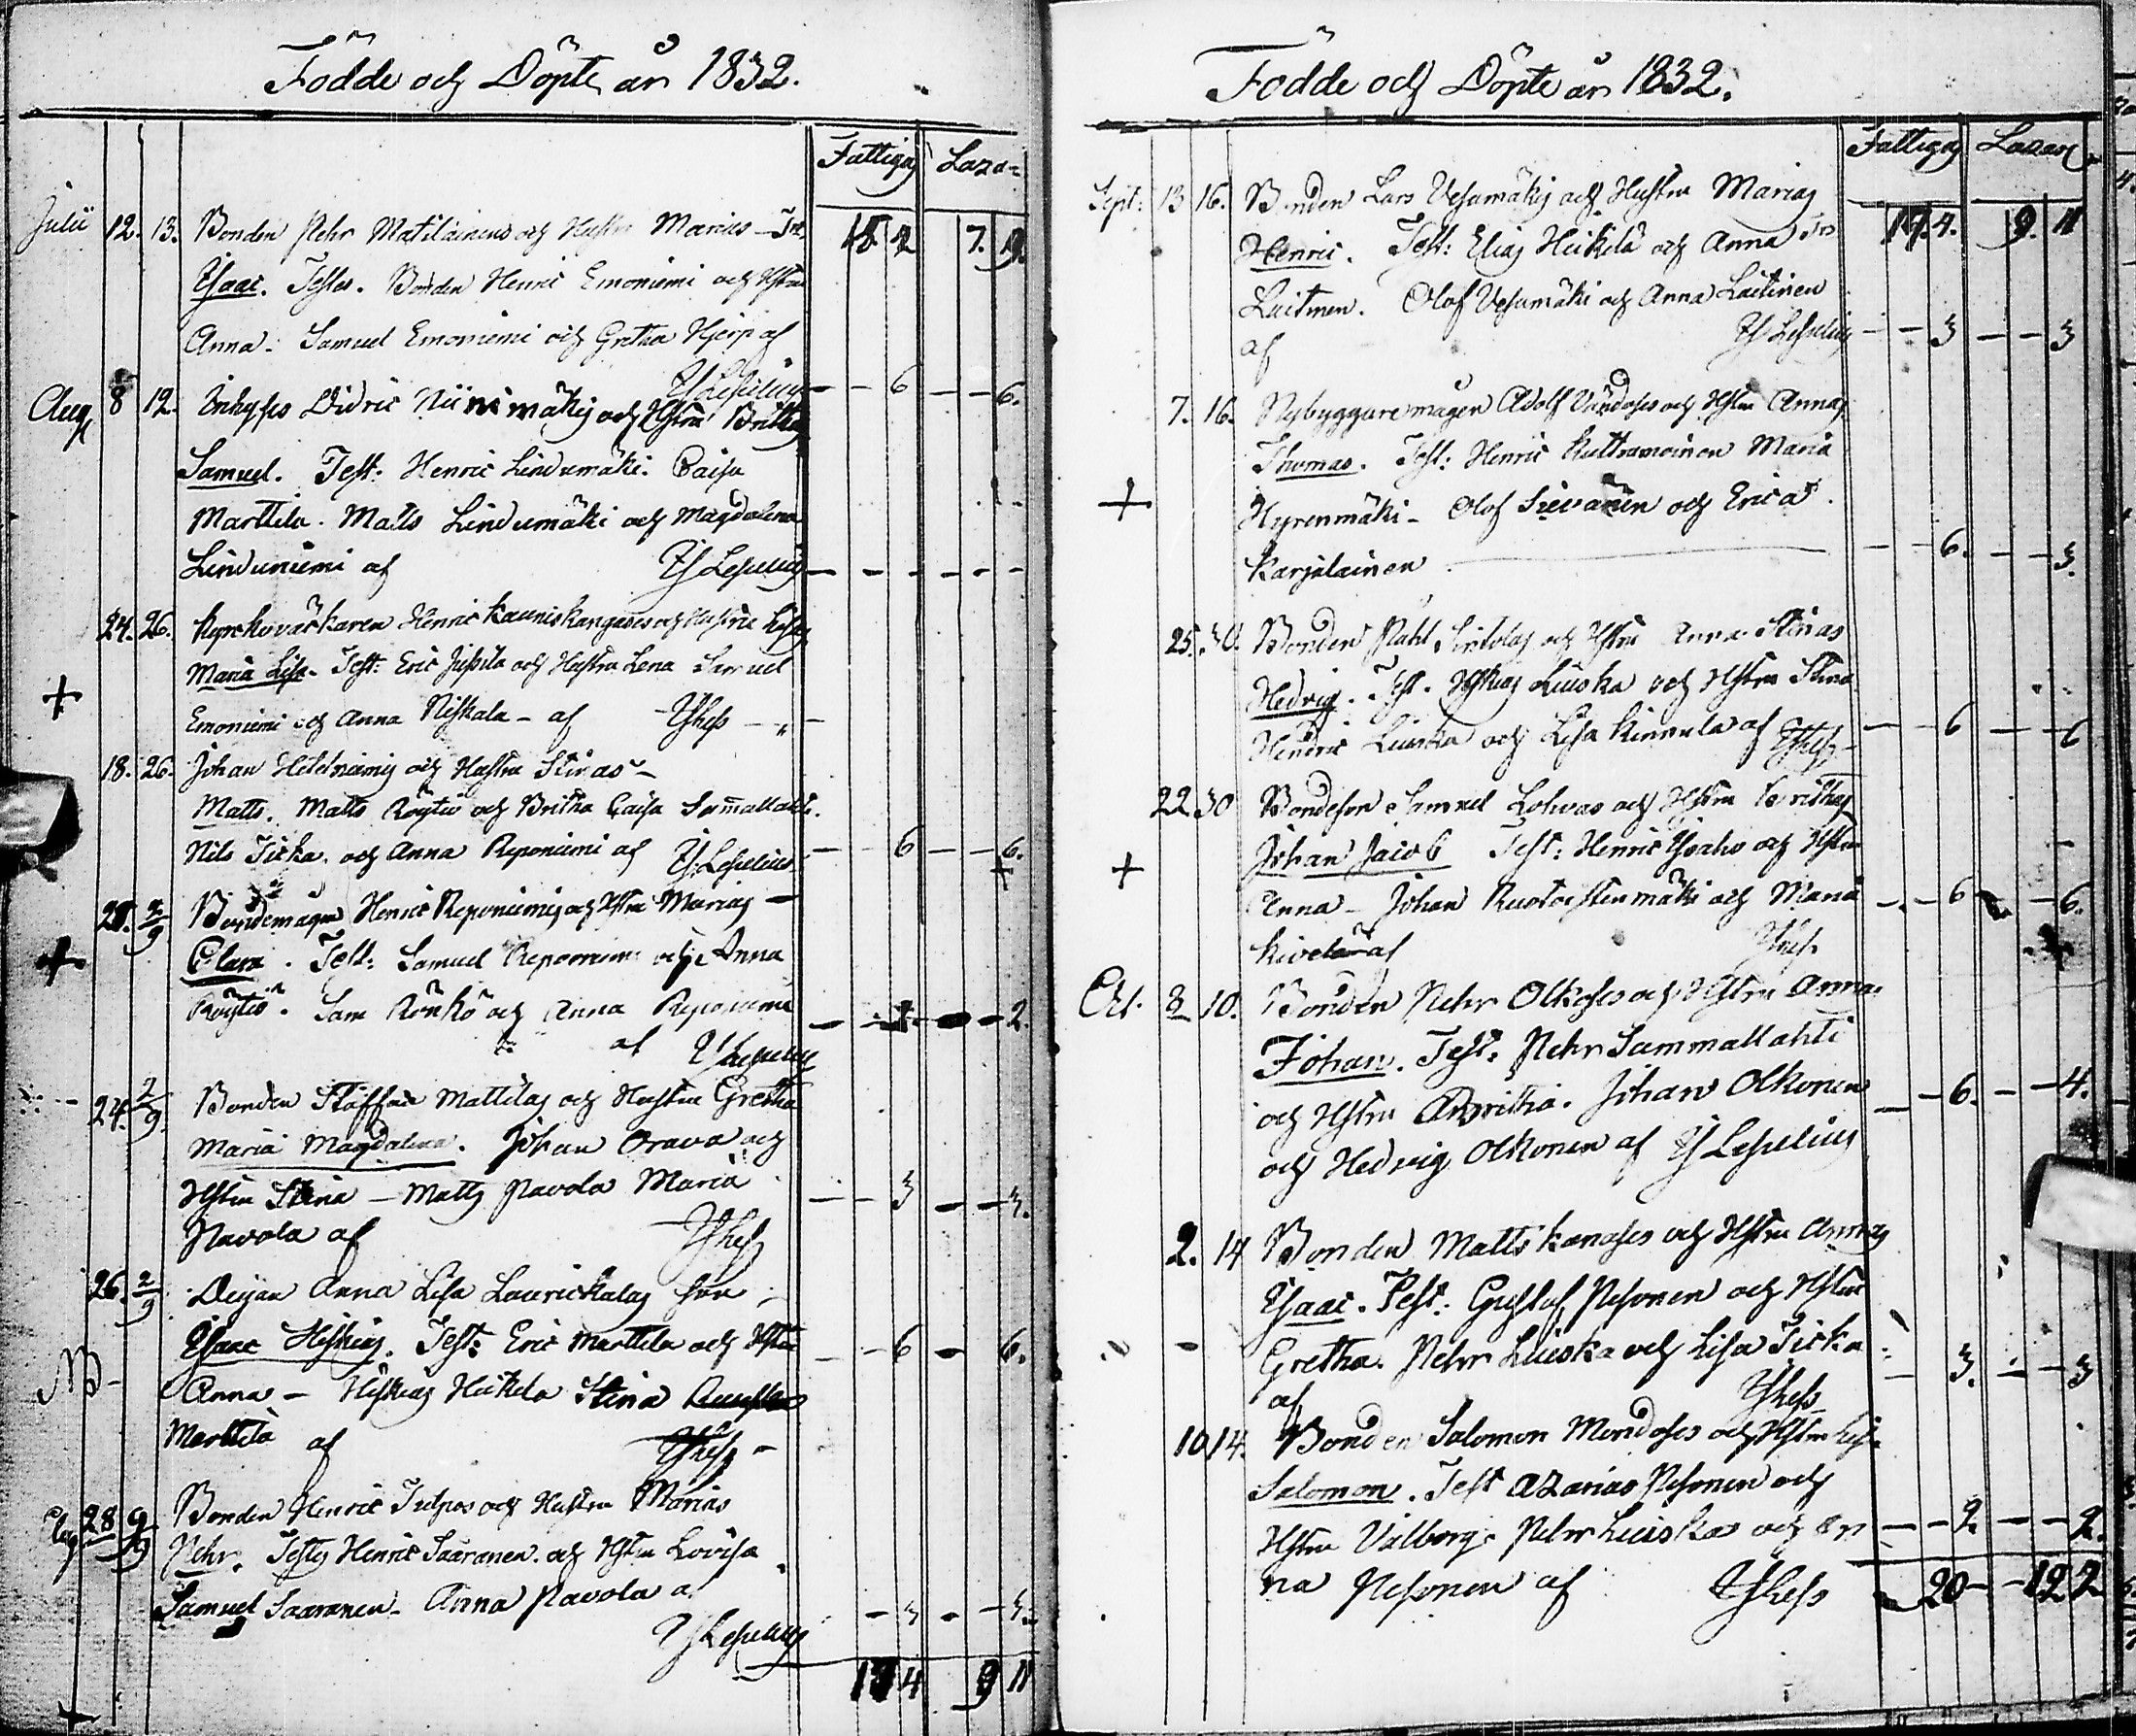 Födde och Döpte år 1832.
Fattiga Laza=
Julii 12. 13. Bonden Pehr Matilainens och Hustru Marias
15 4 7. 9.
Isaac. Testes. Bonden Henric Emoniemi och Hstru
Anna. Samuel Emoniemi och Gretha Hjerp af
Is Lesselius — — 6 — — 6.
Aug 8 12. Inhyses Didric Niinimäkis och Hstru Britha
Samuel. Test: Henric Lindumäki. Caisa
Marttila. Matts Lindumäki och Magdalena
Lindumiemi af Is Lesselius — — — — — —
24. 26. Henric Kauniskangases och Hustru Lisas
Maria Lisa. Test: Eric Jussila och Hustru Lena Samuel
Emoniemi och Anna Niskala — af Is Less —
18. 26. Johan Hildniemis och Hustru Stinas —
Matts. Matts Röytiö och Britha Caisa Sammallahti.
Nils Ticka. och Anna Reponiemi af Is Lesselius — — 6 — — 6.
28. 2/9 Bondemågen Henric Reponiemis och Hstru Marias —
Clara. Test: Samuel Reponiemi och Anna
Röytiö. Sam Rönkö och Anna Reponiemi — — — — 2.
af Is Lesselius
24. 2/9. Bonden Staffan Mattilas och Hustru Gretha
Maria Magdalena. Johan Orava och
Hstru Stina — Matts Pavola Maria — — 3 — — 3.
Pavola af Is Less
26. 2/9 Deijan Anna Lisa Laurickalas son —
Isaac Heskias. Test: Eric Marttila och Hstru — — 6 — 6.
Anna — Heskias Heikela Stina
Marttila af Is Less —
Aug 28 9/9 Bonden Henric Tulpos och Hustru Marias
Pehr. Testes Henric Saaranen. och Hstru Lovisa
Samuel Saaranen — Anna Pavola af — 3 — — 3.
Is Lesselius
17 4 9 11
Födde och Döpte år 1832.
Fattiga Lazar
Sept: 13 16. Bonden Lars Vesamäkis och Hustru Marias
17. 4. 9. 11
Henric. Test: Elias Heikelä och Anna
Laitinen. Olof Vesamäki och Anna Laitinen
af Is Lesselius — — 3 — — 3
7. 16. Nybyggare mågen Adolf Vändoses och Hstru Annas
Thomas. Test: Henric Kuttramoinen Maria
Hyrenmäki — Olof Sievänen och Erica
Karjalainen. — — 6. — — 3.
25. 30. Bonden Påhl Sintolas och Hstru Anna Stinas
Hedvig. Test. Heskias Luiska och Hstru Stina
Hendric Luiska och Lisa Kinnula af Is Less — — 6 — — 6
22 30 Bondeson Samuel Lohvas och Hstru Brithas
Johan Jacob Test: Henric Isoaho och Hstru
Anna — Johan Ruotoistenmäki och Maria — — 6 — — 6.
Kivelä af Is Less
Oct. 8 10. Bonden Pehr Olkoses och Hstru Annas
Johan. Test: Pehr Sammallahti
och Hstru Annritha. Johan Olkonen — — 6. — — 4.
och Hedvig Olkonen af Is Lesselius
2. 14 Bonden Matts Kanoses och Hstru Annas
Isaac. Test: Gustaf Pesonen och Hstru
Gretha. Pehr Luiska och Lisa Ticka — — 3. — — 3
af Is Less
10 14. Bonden Salomon Mondoses och Hstru Lisa
Salomon. Test Azarias Pesonen och
Hstru Valborg. Pehr Luiska och An — — 2 — — 2.
na Pesonen af Is Less — 20 — — 12 2